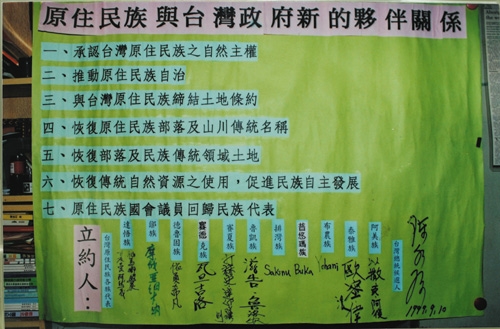 原住民族與台灣政府新的夥伴關係
一、承認台灣原住民族之自然主權
二、推動原住民族自治
三、與台灣原住民族締結土地條約
四、恢復原住民族部落及山川傳統名稱
五、恢復部落及民族傳統領域土地
六、恢復傳統自然資源之使用，促進民族自主發展
七、原住民族國會議員回歸民族代表
立約人：
台灣原住民族各族代表
達悟族
德魯固族
賽德克族
賽夏族
魯凱族
排灣族
普悠瑪族
布農族
泰雅族
阿美族
台灣總統候選人
Sakinu
Yohani
1999.9.10